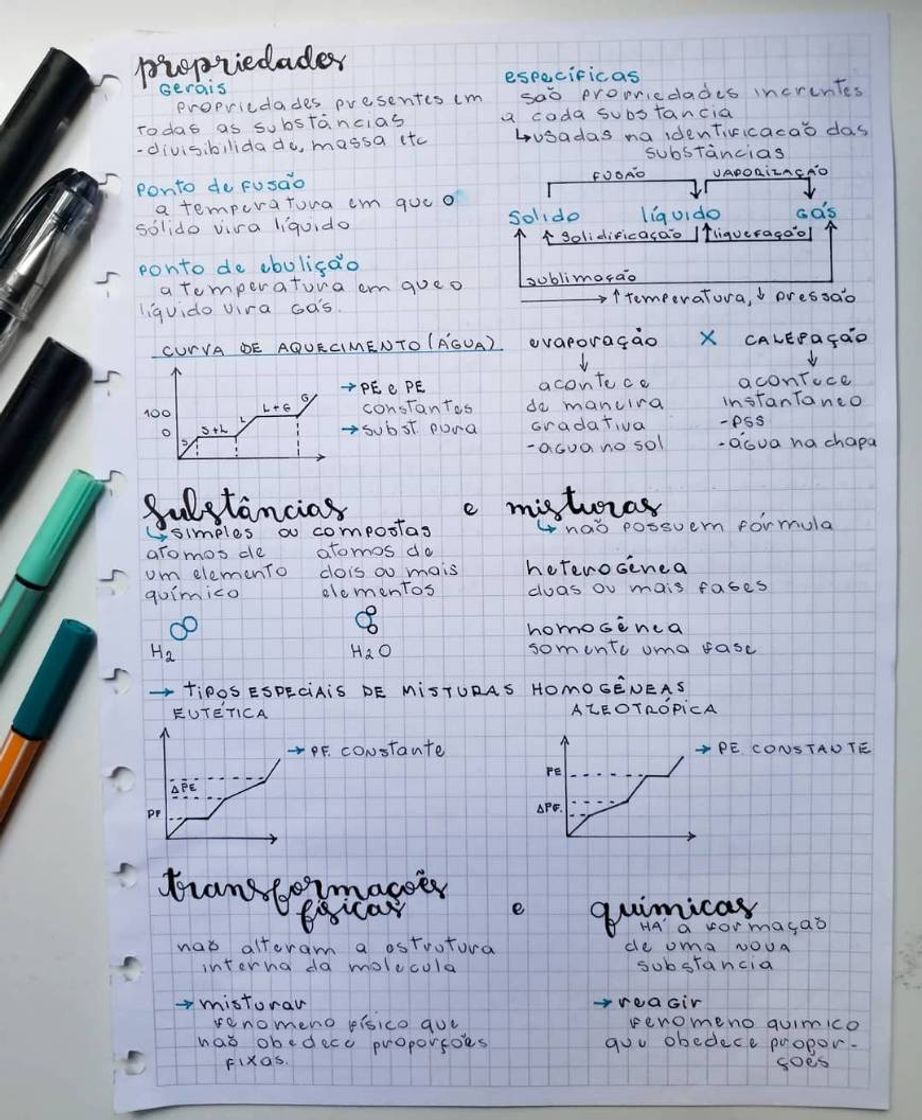 propriedades
Gerais
propriedades presentes em
todas as substâncias
-divisibilidade, massa etc
específicas
são propriedades inerentes
a cada substância
↳usadas na identificação das
substâncias
Ponto de fusão
a temperatura em que o
sólido vira líquido
ponto de ebulição
a temperatura em que o
líquido vira Gás.
FUSÃO VAPORIZAÇÃO
Solido líquido Gás
↑ Solidificação ↑liquefação
sublimação
→ ↑temperatura, ↓ pressão
CURVA DE AQUECIMENTO (ÁGUA)
100
0
S S+L L L+G G
→ PE e PE
constantes
→ subst. pura
evaporação X CALEFAÇÃO
↓ ↓
acontece
de maneira
gradativa
-agua no sol
acontece
instantaneo
-PSS
-água na chapa
Substâncias e misturas
↳simples ou compostas
atomos de
um elemento
químico
atomos de
dois ou mais
elementos
H2
H2O
↳ não possuem fórmula
heterogênea
duas ou mais fases
homogênea
somente uma fase
→ TIPOS ESPECIAIS DE MISTURAS HOMOGÊNEAS
EUTÉTICA
→ PF. constante
ΔPE
PF
AZEOTRÓPICA
→ PE. CONSTANTE
PE
ΔPF.
transformações
físicas e químicas
não alteram a estrutura
interna da molecula
→ misturar
fenomeno físico que
não obedece proporções
fixas.
HÁ a formação
de uma nova
substancia
→ reagir
fenomeno quimico
que obedece propor-
ções